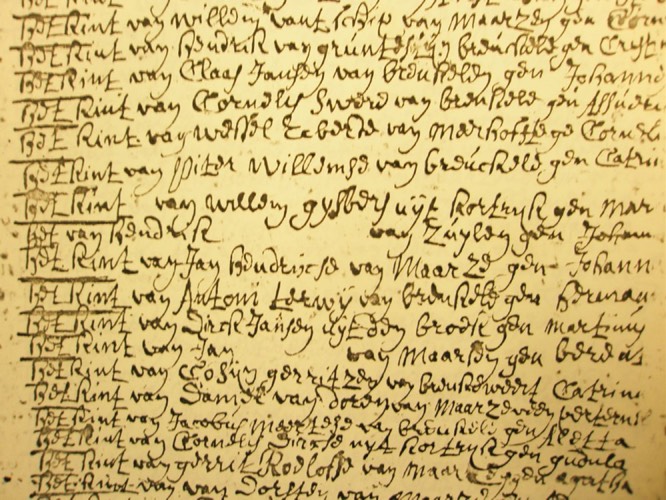 Het kint van Willem vant schip van Maarzen gen
Het kint van hendrik van gruntesijn breukele gen
Het kint van Claas Jansen van breukelen gen Johanne
Het kint van Cornelis Swere van breukele gen
Het kint van wessel Ecberse van Meerhoffte ge Corneli
Het kint van Piter Willemse van breuckele gen Catrin
Het kint van willem gysbers uijt kortryk gen Mar
Het van hendrik van Zuylen gen Johan
Het kint van Jan hendrickse van Maarze gen Johann
Het kint van Antoni terwij van breukele gen herman
Het kint van Dirck Jansen uijt den broek gen Martinus
Het kint van Jan van Maarsen gen berent
Het kint van Cosijn gerritzen van breukeweert Catrin
Het kint van Daniel van Doren van Maarzeveen
Het kint van Jacobus Meertese van breukele gen Aletta
Het kint van Cornelis Dirckse uyt kortryk gen gudula
Het kint van gerrit Roelofse van Maarsen gen agatha
Het kint van van Dorsten van Maarse